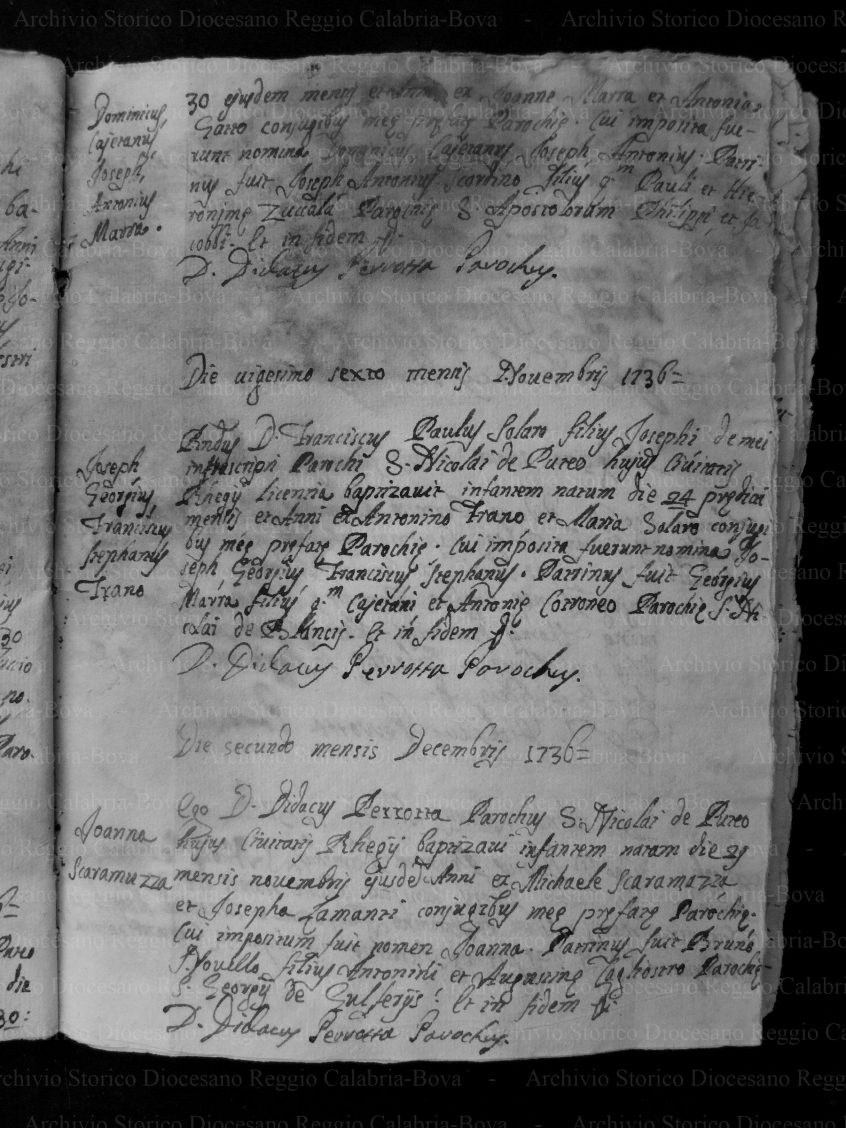 Dominicus
Cajetanus
Joseph
Antonius
Marra.
30 ejusdem mensis et Anni ex Joanne Marra et Antonia
Gatto conjugibus meę prefatę Parochię. Cui imposita fue-
runt nomina Dominicus Cajetanus Joseph Antonius. Patri-
nus fuit Joseph Antonius Scordino filius q.m Pauli et Hie-
ronimę Zuccalà Parochię S. Apostolorum Philippi, et Ja-
cobbi. Et in fidem
D. Didacus Perrotta Parochus.
Die vigesimo sexto mensis Novembris 1736=
Joseph
Georgius
Franciscus
Stephanus
Trano
D. Franciscus Paulus Solaro filius Josephi de mei
infrascripti Parochi S. Nicolai de Puteo hujus Civitatis
Rhegij licentia baptizavit infantem natum die 24 prędicti
mensis et Anni ex Antonino Trano et Maria Solaro conjugi
bus meę pręfatę Parochię. Cui imposita fuerunt nomina Jo-
seph Georgius Franciscus Stephanus. Patrinus fuit Georgius
Marra filius q.m Cajetani et Antonię Cotroneo Parochię S. Ni
colai de Blancis. Et in fidem
D. Didacus Perrotta Parochus.
Die secundo mensis Decembris 1736=
Joanna
Scaramuzza
Ego D. Didacus Perrotta Parochus S. Nicolai de Puteo
hujus Civitatis Rhegij baptizavi infantem natam die 29
mensis novembris ejusdẽ Anni ex Michaele Scaramuzza
et Josepha Lamanti conjugibus meę pręfatę Parochię.
Cui impositum fuit nomen Joanna. Patrinus fuit Bruno
Novello filius Antonini et Augustinę Tagliostro Parochię
S. Georgij de Gulferijs. Et in fidem
D. Didacus Perrotta Parochus.
Archivio Storico Diocesano Reggio Calabria-Bova